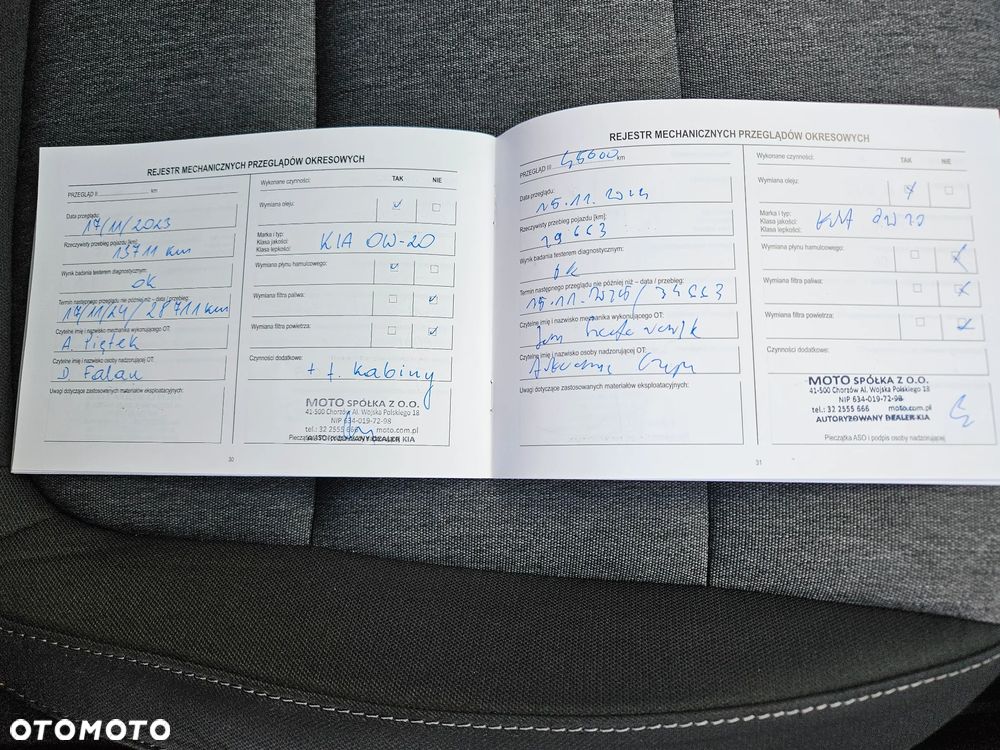 REJESTR MECHANICZNYCH PRZEGLĄDÓW OKRESOWYCH
PRZEGLĄD II km
Data przeglądu:
17/11/2023
Rzeczywisty przebieg pojazdu [km]:
13711 km
Wynik badania testerem diagnostycznym:
ok
Termin następnego przeglądu nie później niż – data / przebieg:
17/11/24/28711 km
Czytelne imię i nazwisko mechanika wykonującego OT:
A. Piętek
Czytelne imię i nazwisko osoby nadzorującej OT:
D. Falau
Uwagi dotyczące zastosowanych materiałów eksploatacyjnych:
Wykonane czynności: TAK NIE
Wymiana oleju:
Marka i typ:
Klasa jakości:
Klasa lepkości:
KIA 0W-20
Wymiana płynu hamulcowego:
Wymiana filtra paliwa:
Wymiana filtra powietrza:
Czynności dodatkowe:
+ f. kabiny
MOTO SPÓŁKA Z O.O.
41-500 Chorzów Al. Wojska Polskiego 18
NIP 634-019-72-98
tel.: 32 2555 666 moto.com.pl
AUTORYZOWANY DEALER KIA
30
REJESTR MECHANICZNYCH PRZEGLĄDÓW OKRESOWYCH
PRZEGLĄD III 45000 km
Data przeglądu:
15.11.2024
Rzeczywisty przebieg pojazdu [km]:
19663
Wynik badania testerem diagnostycznym:
ok
Termin następnego przeglądu nie później niż – data / przebieg:
15.11.2025/34663
Czytelne imię i nazwisko mechanika wykonującego OT:
Czytelne imię i nazwisko osoby nadzorującej OT:
Uwagi dotyczące zastosowanych materiałów eksploatacyjnych:
Wykonane czynności: TAK NIE
Wymiana oleju:
Marka i typ:
Klasa jakości:
Klasa lepkości:
KIA 0W20
Wymiana płynu hamulcowego:
Wymiana filtra paliwa:
Wymiana filtra powietrza:
Czynności dodatkowe:
MOTO SPÓŁKA Z O.O.
41-500 Chorzów Al. Wojska Polskiego 18
NIP 634-019-72-98
tel.: 32 2555 666 moto.com.pl
AUTORYZOWANY DEALER KIA
Pieczątka ASO i podpis osoby nadzorującej
31
OTOMOTO